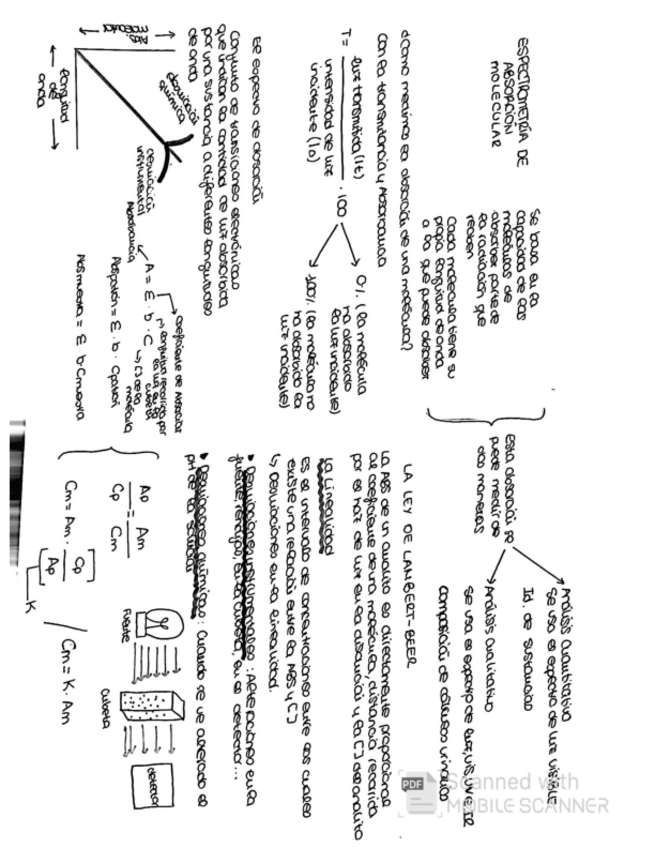 ESPECTROMETRÍA DE
ABSORCIÓN
MOLECULAR
Se basa en la
capacidad de las
moléculas de
absorber parte de
la radiación que
reciben
Cada molécula tiene su
propia longitud de onda
a la que puede absorber
Esta absorción se
puede medir de
dos maneras
Análisis Cuantitativo
Se usa el espectro de luz visible
Id. de sustancias
Análisis Cualitativo
Se usa el espectro de luz, vis, UV e IR
composición de cálculos urinarios
¿Cómo medimos la absorción de una molécula?
Con la transmitancia y Absorbancia
T = luz transmitida (It)
intensidad de luz
incidente (Io)
· 100
0% (la molécula
ha absorbido
la luz incidente)
100% (la molécula no
ha absorbido la
luz incidente)
El espectro de absorción
Conjunto de transiciones electrónicas
que indican la cantidad de luz absorbida
por una sustancia a diferentes longitudes
de onda
Abs
molecular
longitud
de
onda
desviación
química
desviación
instrumental
A = ε · b · C
Absorbancia
coeficiente de Absorción
longitud recorrida por
la luz en la
cubeta
[] de la
molécula
Abs patrón = ε · b · Cpatrón
Abs muestra = ε b Cmuestra
LA LEY DE LAMBERT-BEER
La ABS de un analito es directamente proporcional
al coeficiente de una molécula, distancia recorrida
por el haz de luz en la disolución y la [] del analito
La Linealidad
Es el intervalo de concentraciones entre las cuales
existe una relación entre la ABS y []
↳ Desviaciones en la linealidad.
• Desviaciones instrumentales: Alteraciones en la
fuente, rendijas, en la cubeta, en el detector...
• Desviaciones químicas: Cuando se ve alterado el
pH de la solución
Ap = Am
Cp Cm
Cm = Am · [Cp / Ap]
K
Cm = K · Am
Fuente
Cubeta
Detector
PDF
Scanned with
MOBILE SCANNER